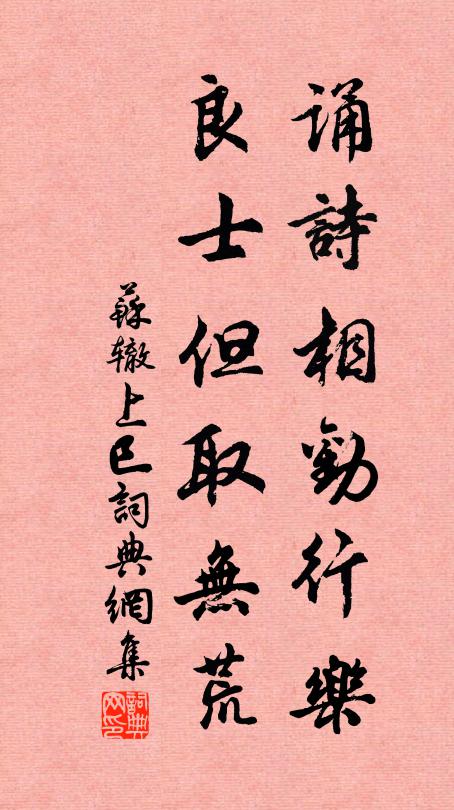 诵詩相勸行樂
良士但取無荒
蘇辙上巳詞典網集
詞典网印